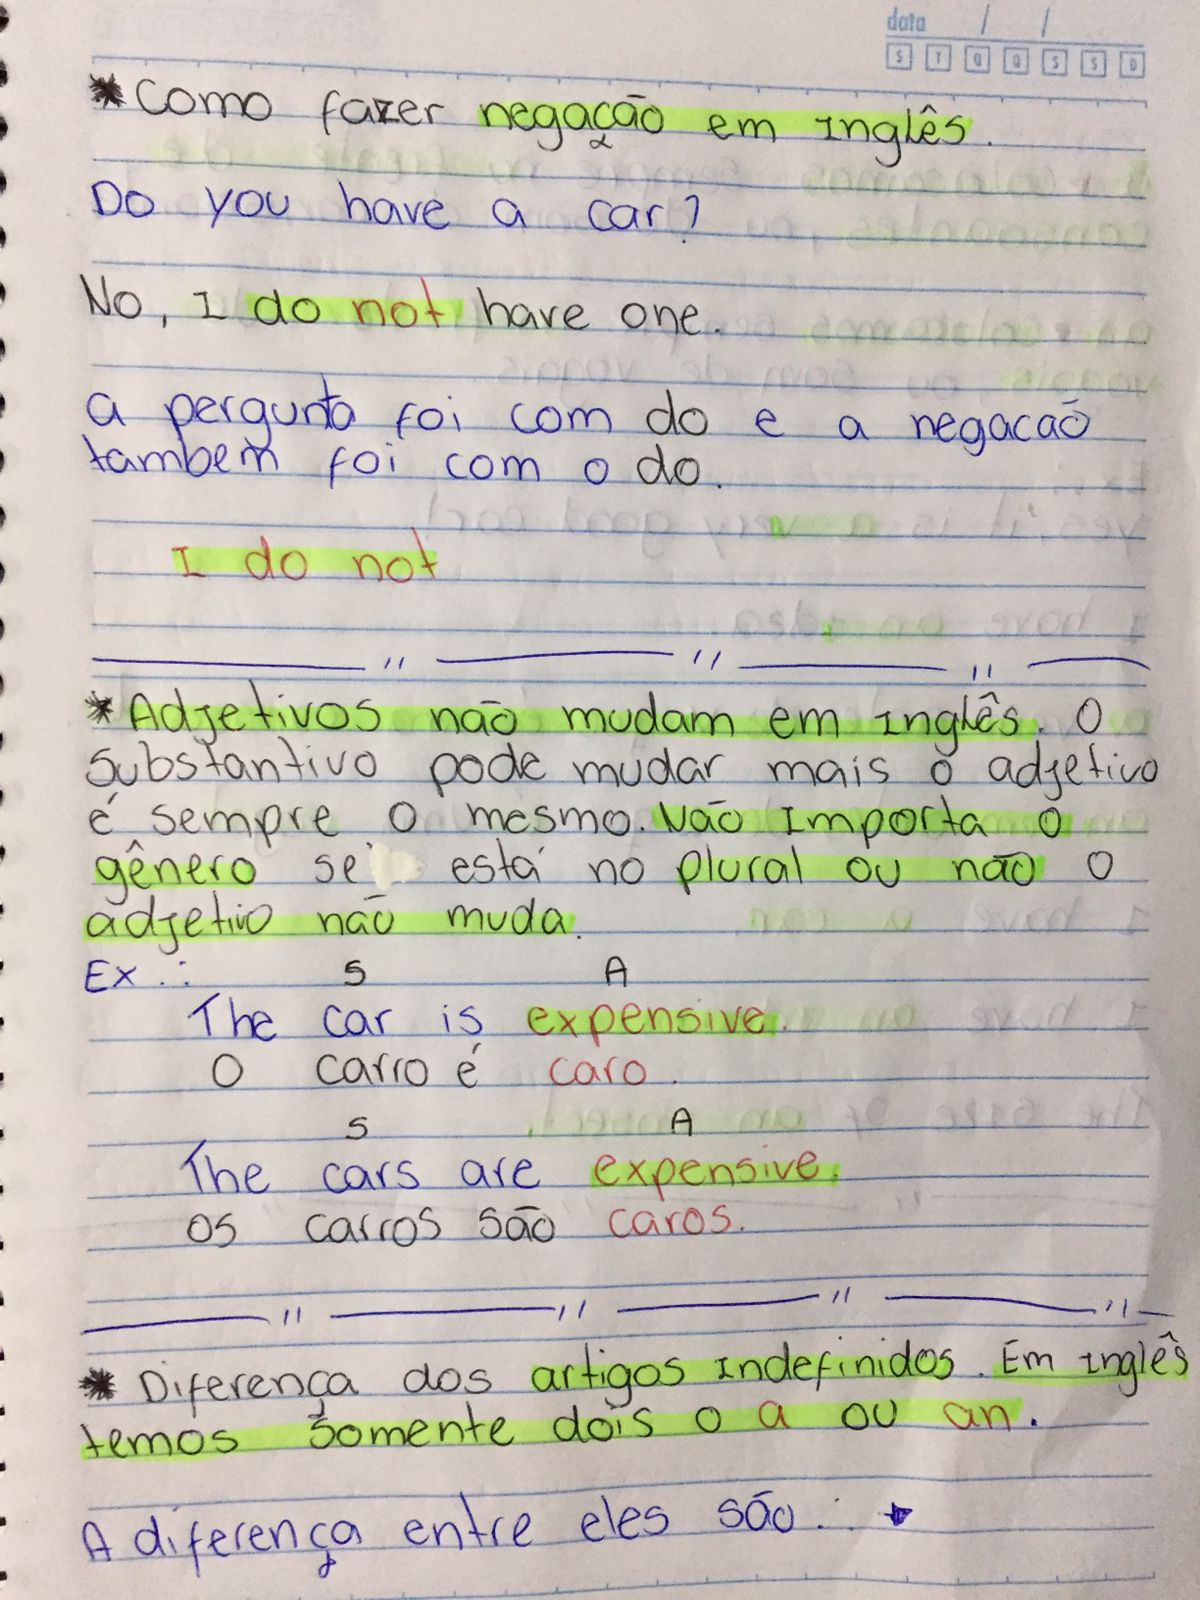 data / /
S T Q Q S S D
* Como fazer negação em Inglês.
Do you have a car?
No, I do not have one.
a pergunta foi com do e a negacão
também foi com o do.
I do not
* Adjetivos não mudam em Inglês. O
substantivo pode mudar mais o adjetivo
é sempre o mesmo. Não Importa o
gênero se está no plural ou não o
adjetivo não muda.
Ex.:
S A
The car is expensive.
O carro é caro.
S A
The cars are expensive.
os carros são caros.
* Diferença dos artigos Indefinidos. Em Inglês
temos somente dois o a ou an.
A diferença entre eles são: